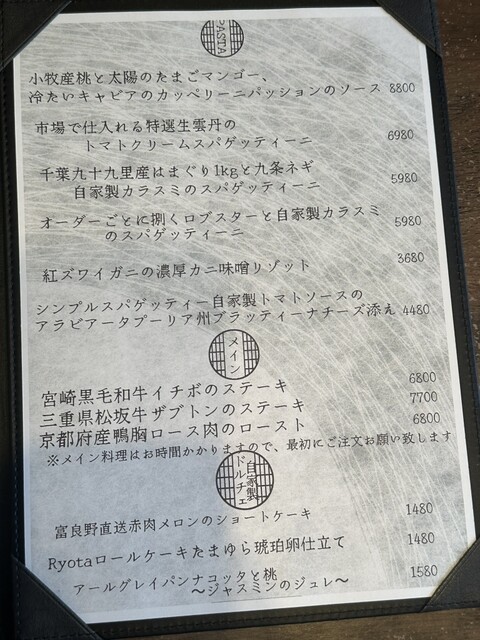 PASTA
小牧産桃と太陽のたまごマンゴー、
冷たいキャビアのカッペリーニパッションのソース 8800
市場で仕入れる特選生雲丹の
トマトクリームスパゲッティーニ 6980
千葉九十九里産はまぐり1kgと九条ネギ
自家製カラスミのスパゲッティーニ 5980
オーダーごとに捌くロブスターと自家製カラスミ
のスパゲッティーニ 5980
紅ズワイガニの濃厚カニ味噌リゾット 3680
シンプルスパゲッティー自家製トマトソースの
アラビアータプーリア州ブラッティーナチーズ添え 4480
メイン
宮崎黒毛和牛イチボのステーキ 6800
三重県松坂牛ザブトンのステーキ 7700
京都府産鴨胸ロース肉のロースト 6800
※メイン料理はお時間かかりますので、最初にご注文お願い致します
自家製
ドルチェ
富良野直送赤肉メロンのショートケーキ 1480
Ryotaロールケーキたまゆら琥珀卵仕立て 1480
アールグレイパンナコッタと桃 1580
～ジャスミンのジュレ～